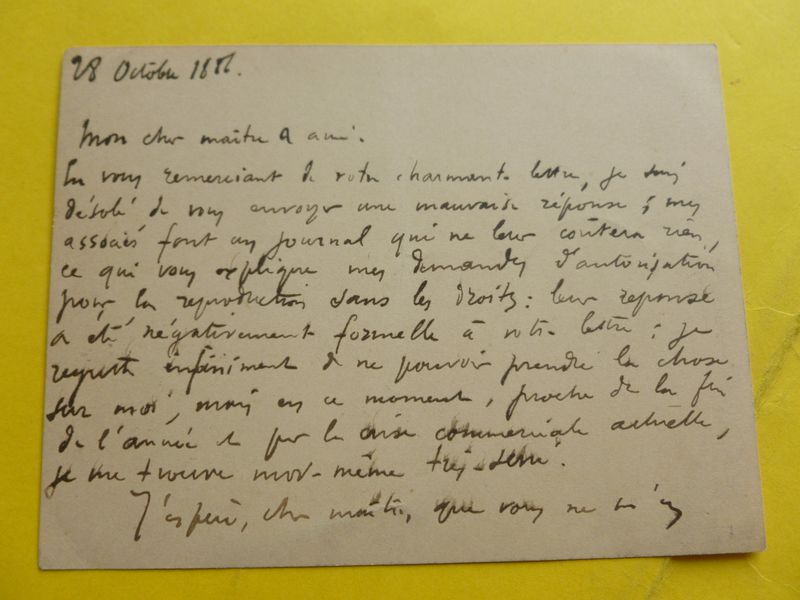 28 Octobre 1886.
Mon cher maître & ami.
En vous remerciant de votre charmante lettre, je suis
désolé de vous envoyer une mauvaise réponse ; mes
associés font un journal qui ne leur coûtera rien,
ce qui vous explique mes demandes d'autorisation
pour la reproduction sans les droits : leur reponse
a été négativement formelle à votre lettre ; je
regrette infiniment de ne pouvoir prendre la chose
sur moi, mais en ce moment, proche de la fin
de l'année et par la crise commerciale actuelle,
je me trouve moi-même très-serré.
J'espère, cher maître, que vous ne m'en